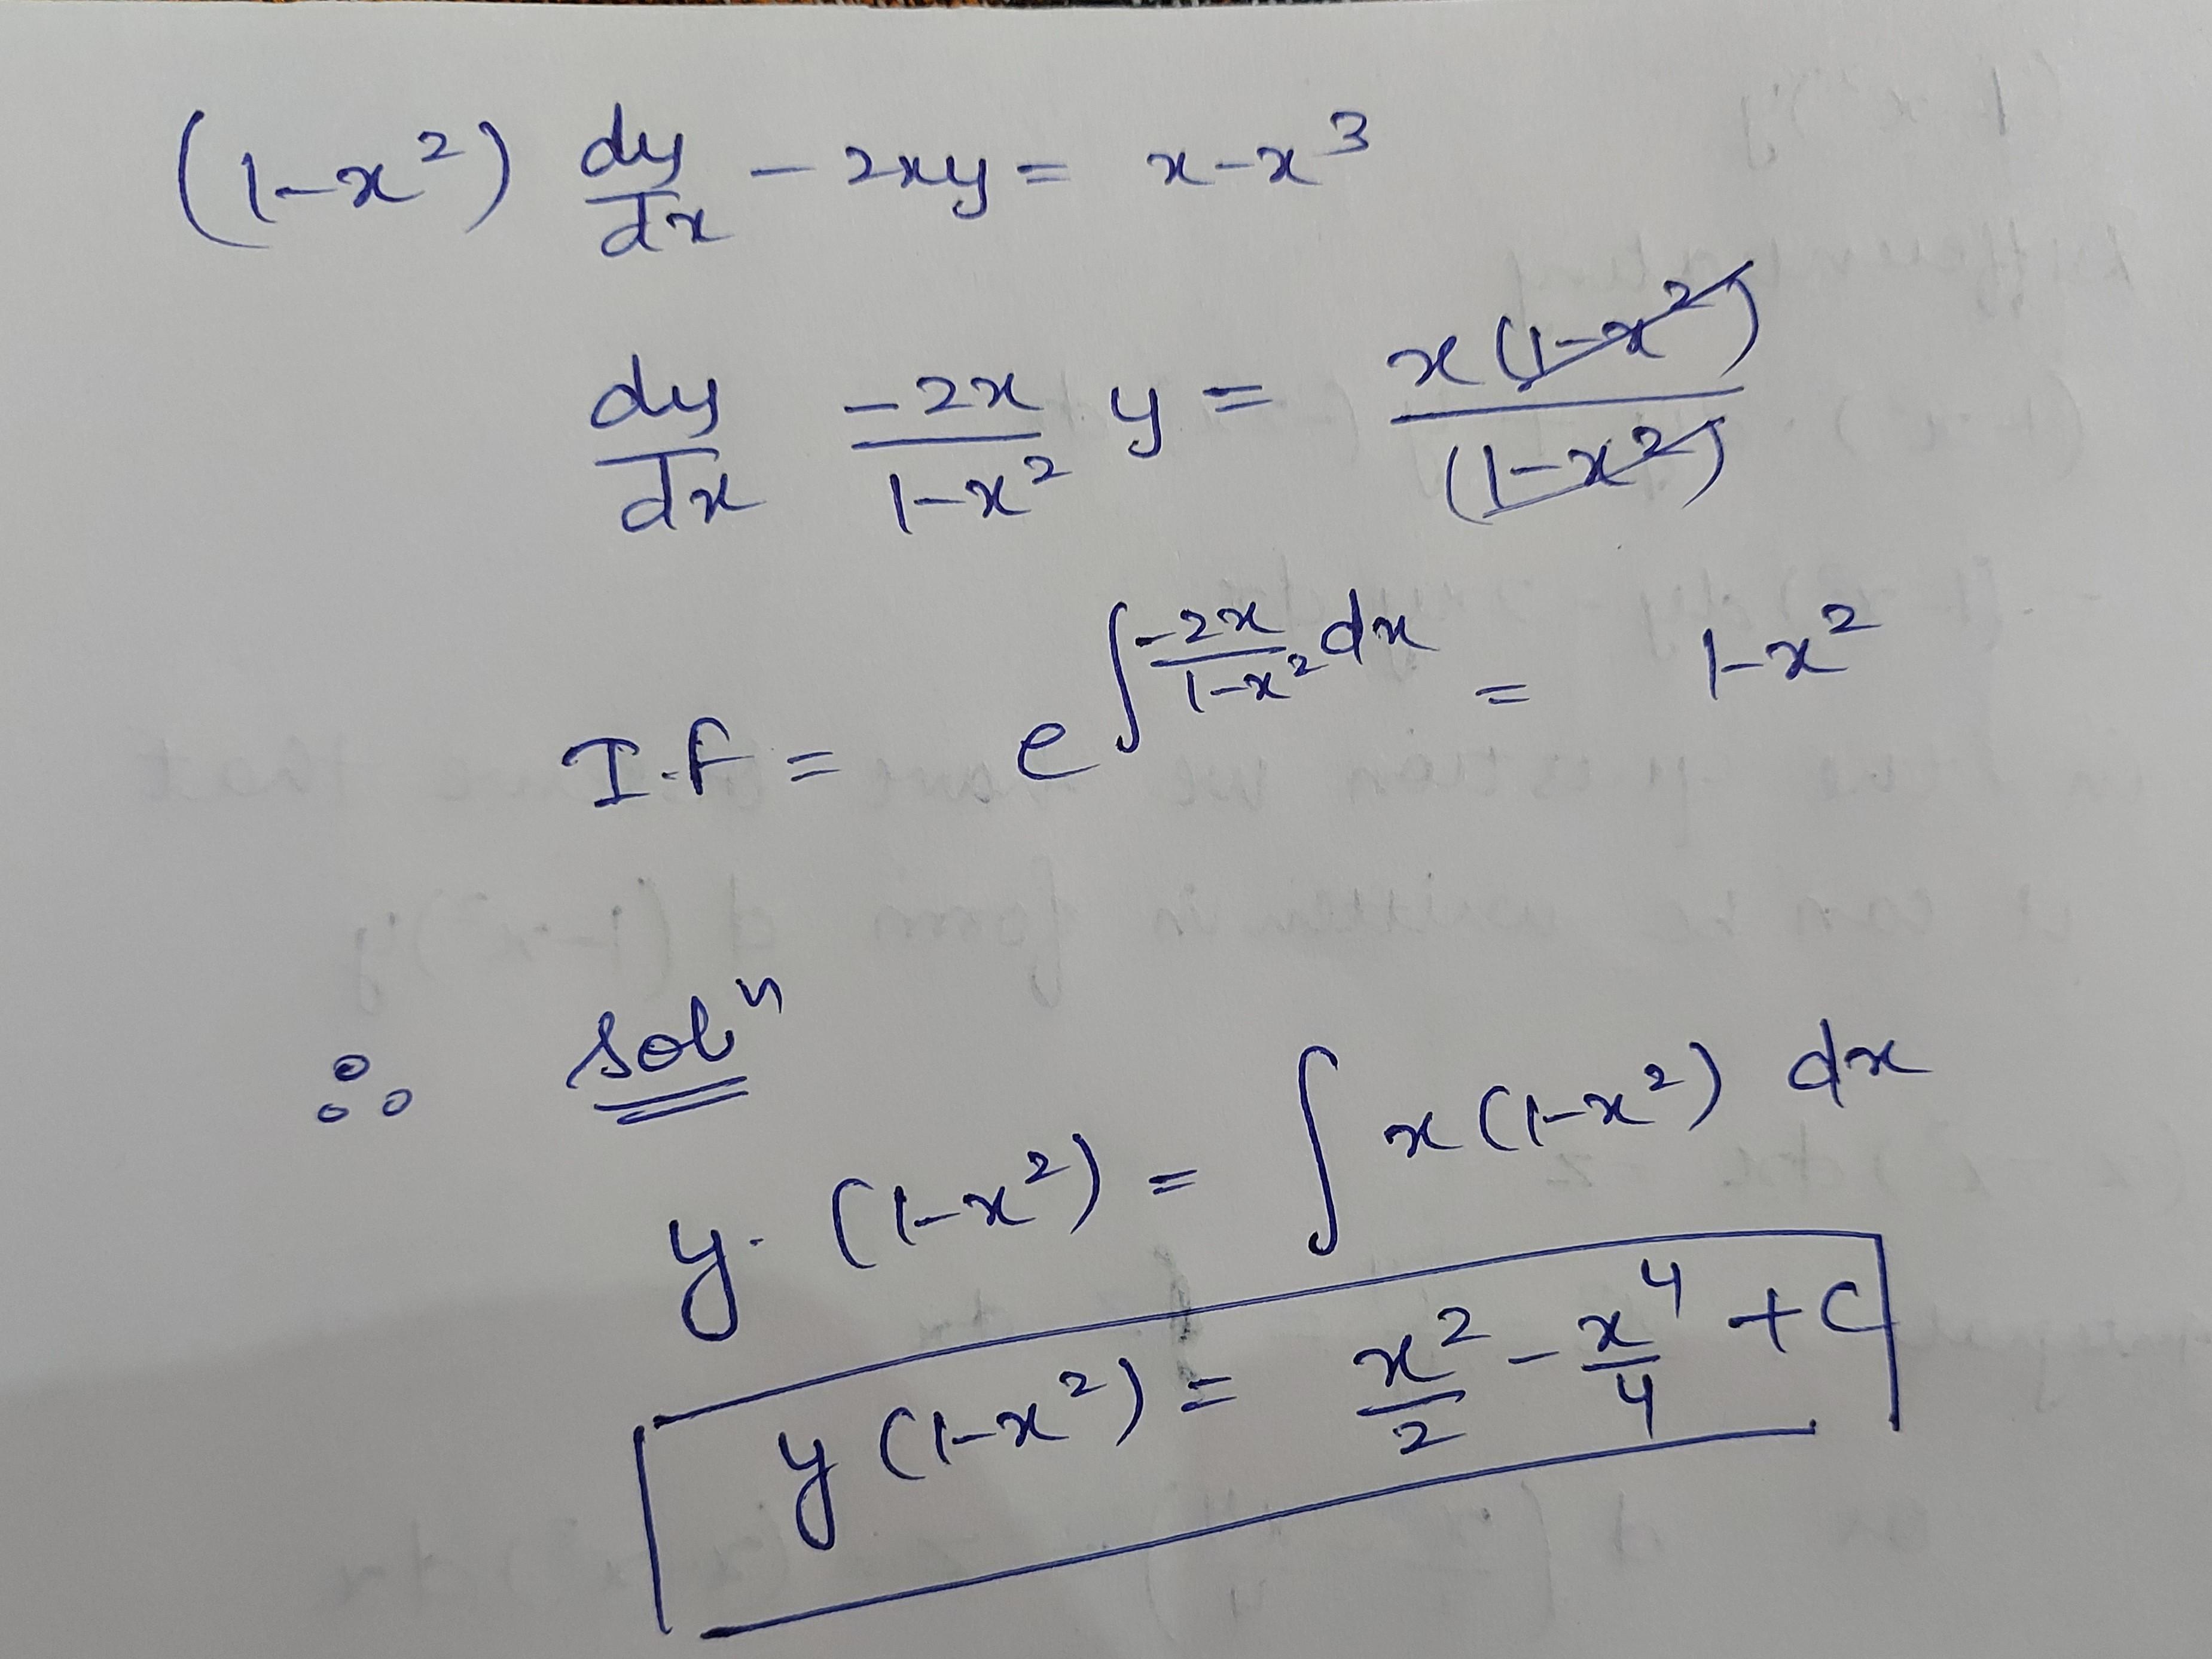 (1-x²) dy/dx - 2xy = x-x³
dy/dx -2x/1-x² y = x(1-x²)/(1-x²)
I.F = e^∫-2x/1-x² dx = 1-x²
∴ solⁿ
y. (1-x²) = ∫ x(1-x²) dx
y(1-x²) = x²/2 - x⁴/4 + C